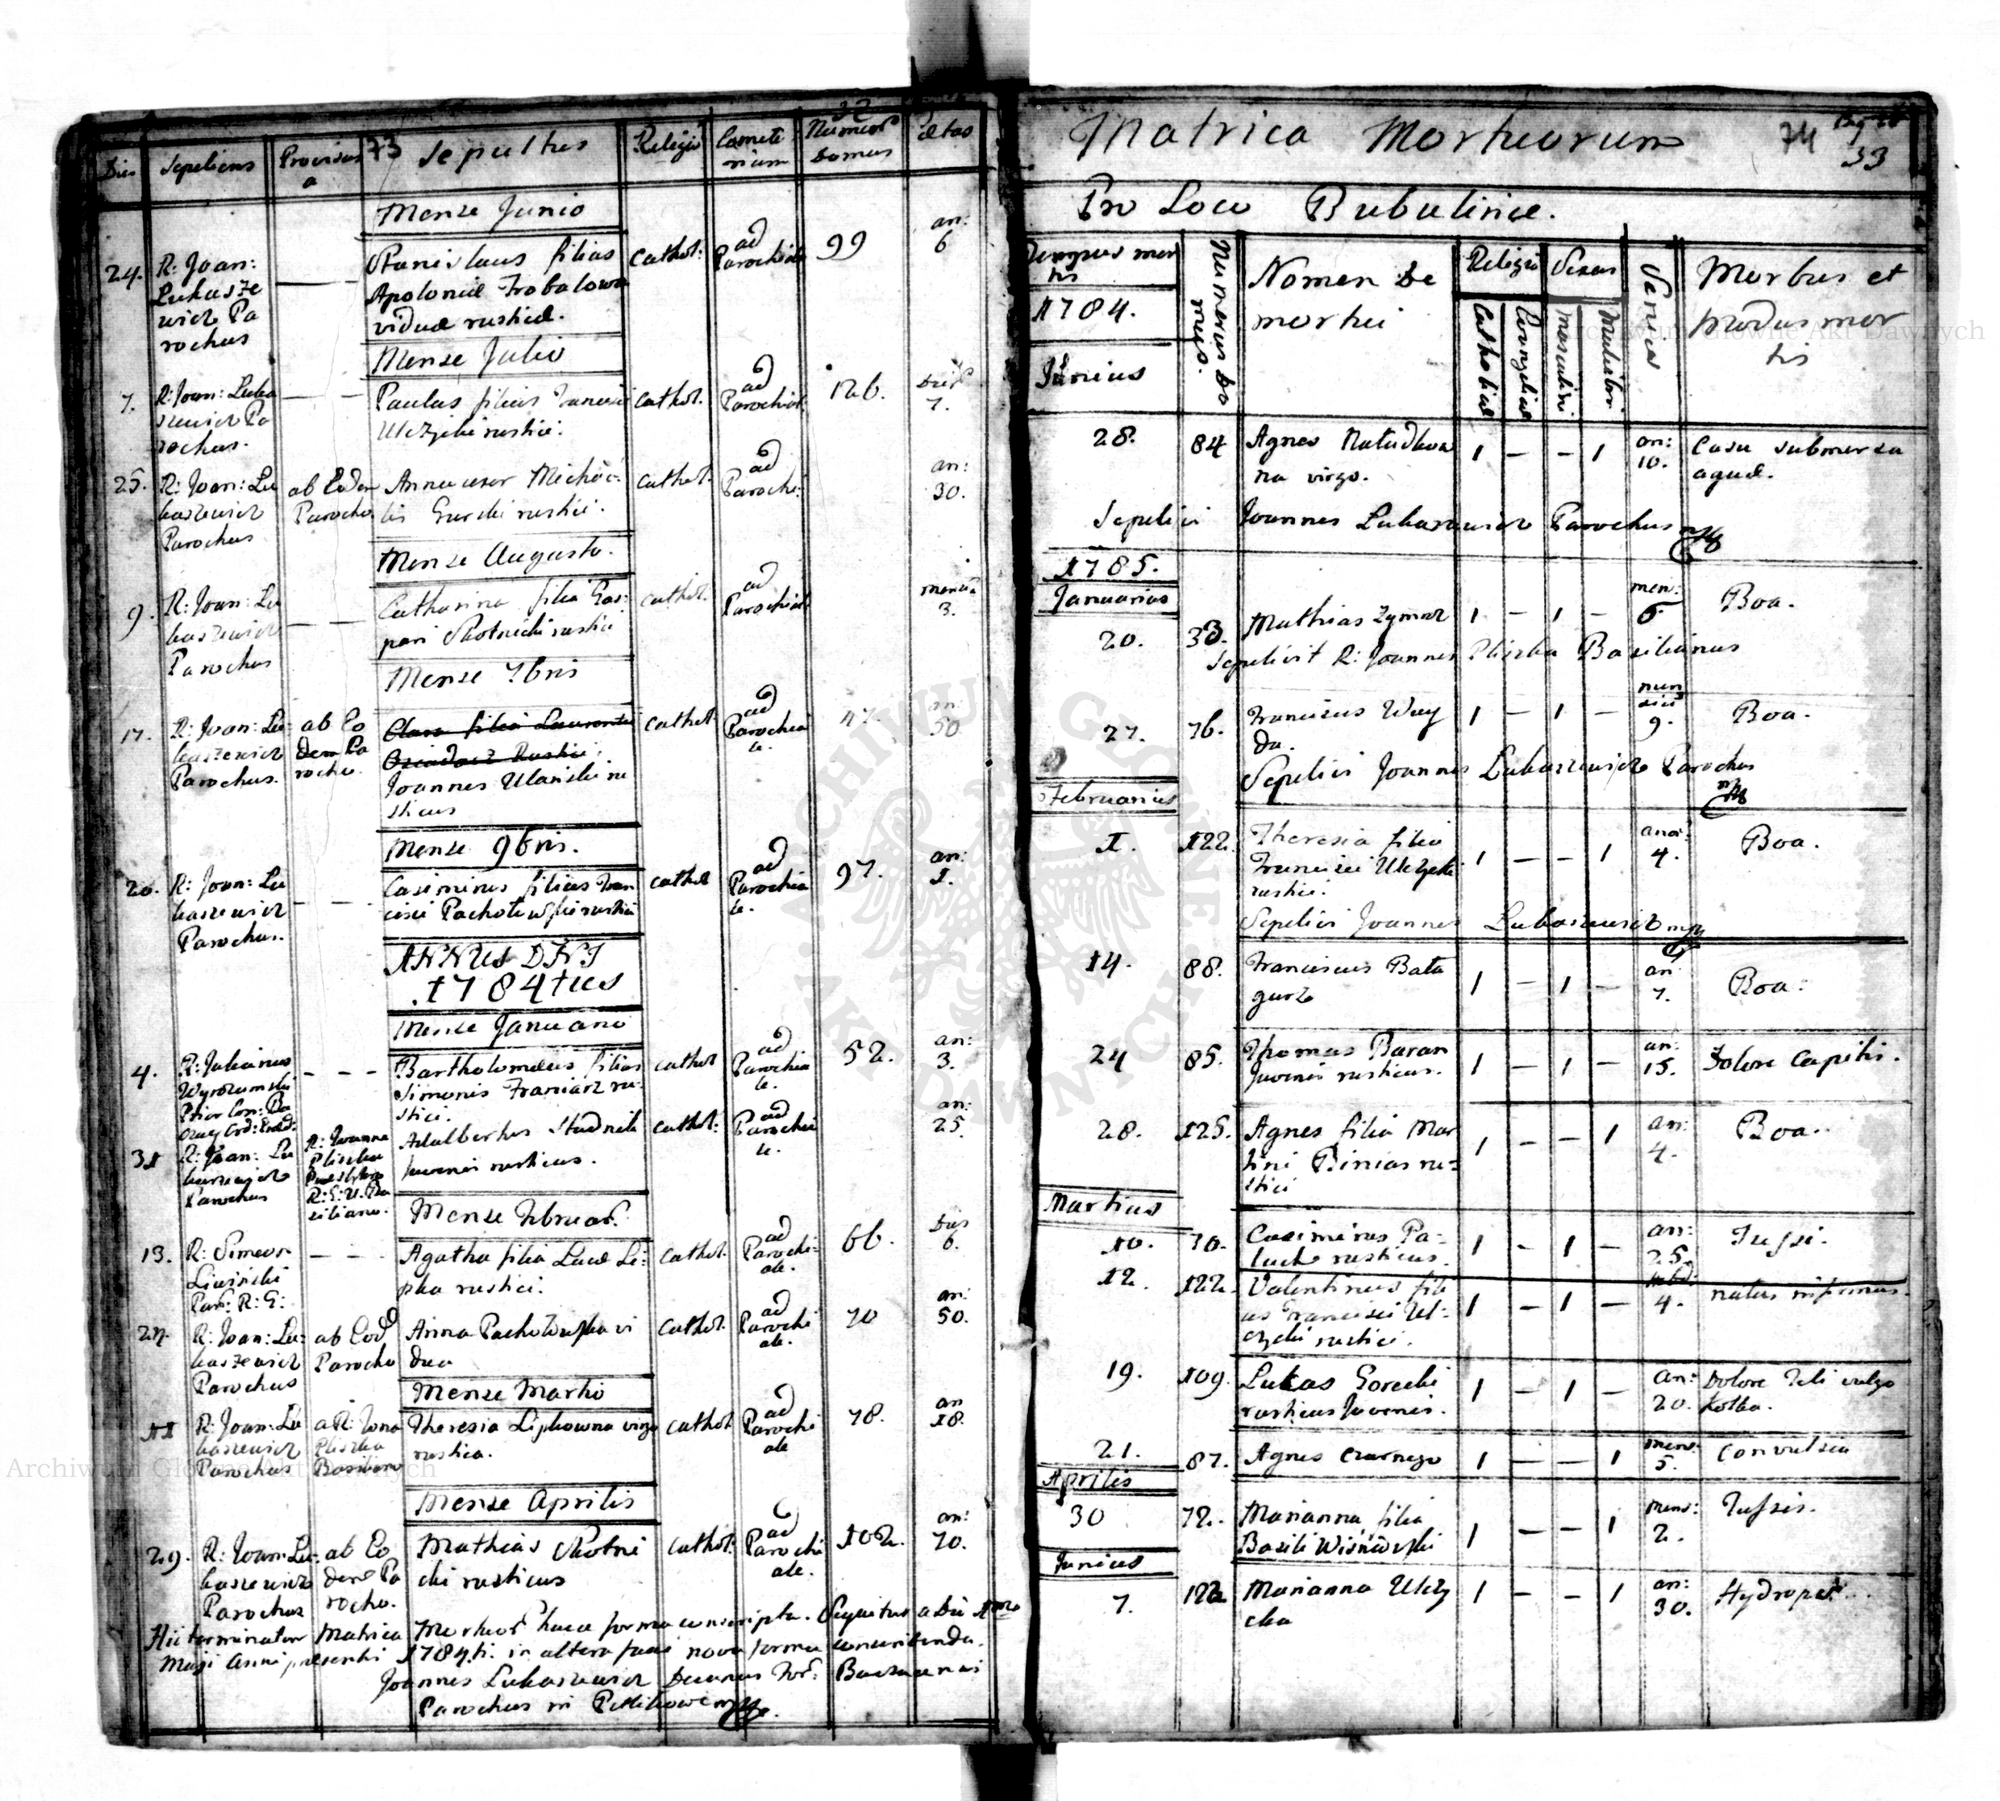 73
32
Dies
Sepeliens
Provisus a
Sepultus
Religio
Cemete
rium
Numerus
Domus
Ætas
Mense Junio
24.
R: Joan:
Lukasze
wicz Pa
rochus
Stanislaus filius
Apoloniæ
viduæ rusticæ.
Cathol:
ad
Parochiale
99
an:
6
Mense Julio
7.
R: Joan: Luka
szewicz Pa
rochus.
Paulus filius Francisci
Ulczycki rustici.
Cathol.
ad
Parochial
126.
7.
25.
R: Joan: Lu
kaszewicz
Parochus
ab Eodem
Parocho
Anna uxor Micha
elis Gurski rustici.
Cathol.
ad
Parochi:
an:
30.
Mense Augusto.
9.
R: Joan: Lu
kaszewicz
Parochus
Catharina filia Gas
pari Skotnicki rustici
Cathol.
ad
Parochial
3.
Mense 7bris
17.
R: Joan: Lu
kaszewicz
Parochus.
ab Eo
dem Pa
rocho.
Clara filia Laurentii
Rustici.
Joannes Ulanicki ru
sticus
Cathol
ad
Parochia
le.
47.
an:
50
Mense 9bris.
20.
R: Joan: Lu
kaszewicz
Parochus.
Casimirus filius Fran
cisci Pacholewski rustici
Cathol
ad
Parochia
le.
97.
an:
1.
ANNUS DNI
1784tus
Mense Januario
4.
R: Julianus
Wyrozumski
Prior
Bartholomæus filius
Simonis Franiarz ru
stici.
Cathol
ad
Parochia
le.
52.
an:
3.
31
R: Joan: Lu
kaszewicz
Parochus
R: Joanne
Pliszka
R: G: U: Ba
siliano.
Adalbertus Studnik
Juvenis rusticus.
Cathol:
ad
Parochia
le.
an:
25.
Mense Februar.
13.
R: Simeon
Liwinski
Par: R: G:
Agatha filia Lucæ Li
pka rustici.
Cathol.
ad
Parochi
ale.
66.
6.
27.
R: Joan: Lu
kaszewicz
Parochus
ab Eod
Parocho
Anna Pacholewska vi
dua
Cathol.
ad
Parochi
ale.
70
an:
50.
Mense Martio
11
R: Joan: Lu
kaszewicz
Parochus
a R: Joan
Pliszka
Basiliano
Theresia Lipkowna virgo
rustica.
Cathol
ad
Parochi
ale
78.
an
18.
Mense Aprilis
29.
R: Joan: Lu
kaszewicz
Parochus
ab Eo
dem Pa
rocho.
Mathias Skotni
cki rusticus
Cathol.
ad
Parochi
ale.
102.
an:
70.
Hic terminatur Matrica Mortuor hacce forma conscripta. Sequitur a die 1ma
Maji Anni præsentis 1784ti. in altera facie nova forma conscribenda.
Joannes Lukaszewicz Decanus For:
Parochus in Petlikowce mpp.
Matrica Mortuorum
74
33
Pro Loco Bubulince.
Tempus mor
tis
1784.
Junius
Numerus Do
mus.
Nomen De
mortui
Religio
Catholica
Evangelica
Sexus
Masculini
Muliebri
Morbus et
Modus mor
tis
28.
84
Agnes
na virgo.
1 - - 1
an:
10.
Casu submersa
aquæ.
Sepelivi Joannes Lukaszewicz Parochus mpp
1785.
Januarius
20.
33.
Mathias Zymar
1 - 1 -
men:
6.
Boa.
Sepelivit R: Joannes Pliszka Basilianus
27.
76.
Franciscus Way
da.
1 - 1 -
men
sium
9.
Boa.
Sepelivi Joannes Lukaszewicz Parochus
mpp
Februarius
1.
122.
Theresia filia
Francisci Ulczycki
rustici.
1 - - 1
4.
Boa.
Sepelivi Joannes Lukaszewicz mpp
14.
88.
Franciscus Bala
gurz
1 - 1 -
an
7.
Boa.
24
85.
Thomas Baran
Juvenis rusticus.
1 - 1 -
an:
15.
Dolore Capitis.
28.
125.
Agnes filia Mar
tini Binias ru
stici
1 - - 1
an:
4.
Boa.
Martius
10.
70.
Casimirus Pa
luch rusticus.
1 - 1 -
an:
25.
Tussi.
12.
122.
Valentinus fili
us Francisci Ul
czycki rustici.
1 - 1 -
4.
natus infirmus.
19.
109.
Lukas Gorecki
rusticus Juvenis.
1 - 1 -
an:
20.
Dolore vulgo
Kolka.
21.
87.
Agnes Czarnego
1 - - 1
mens:
5.
Convulsia
Aprilis
30
72.
Marianna filia
Basili Wisniewski
1 - - 1
mens:
2.
Tussis.
Junius
7.
122
Marianna Ulczy
cka
1 - - 1
an:
30.
Archiwum Główne Akt Dawnych
Archiwum Główne Akt Dawnych
ARCHIWUM GŁÓWNE AKT DAWNYCH